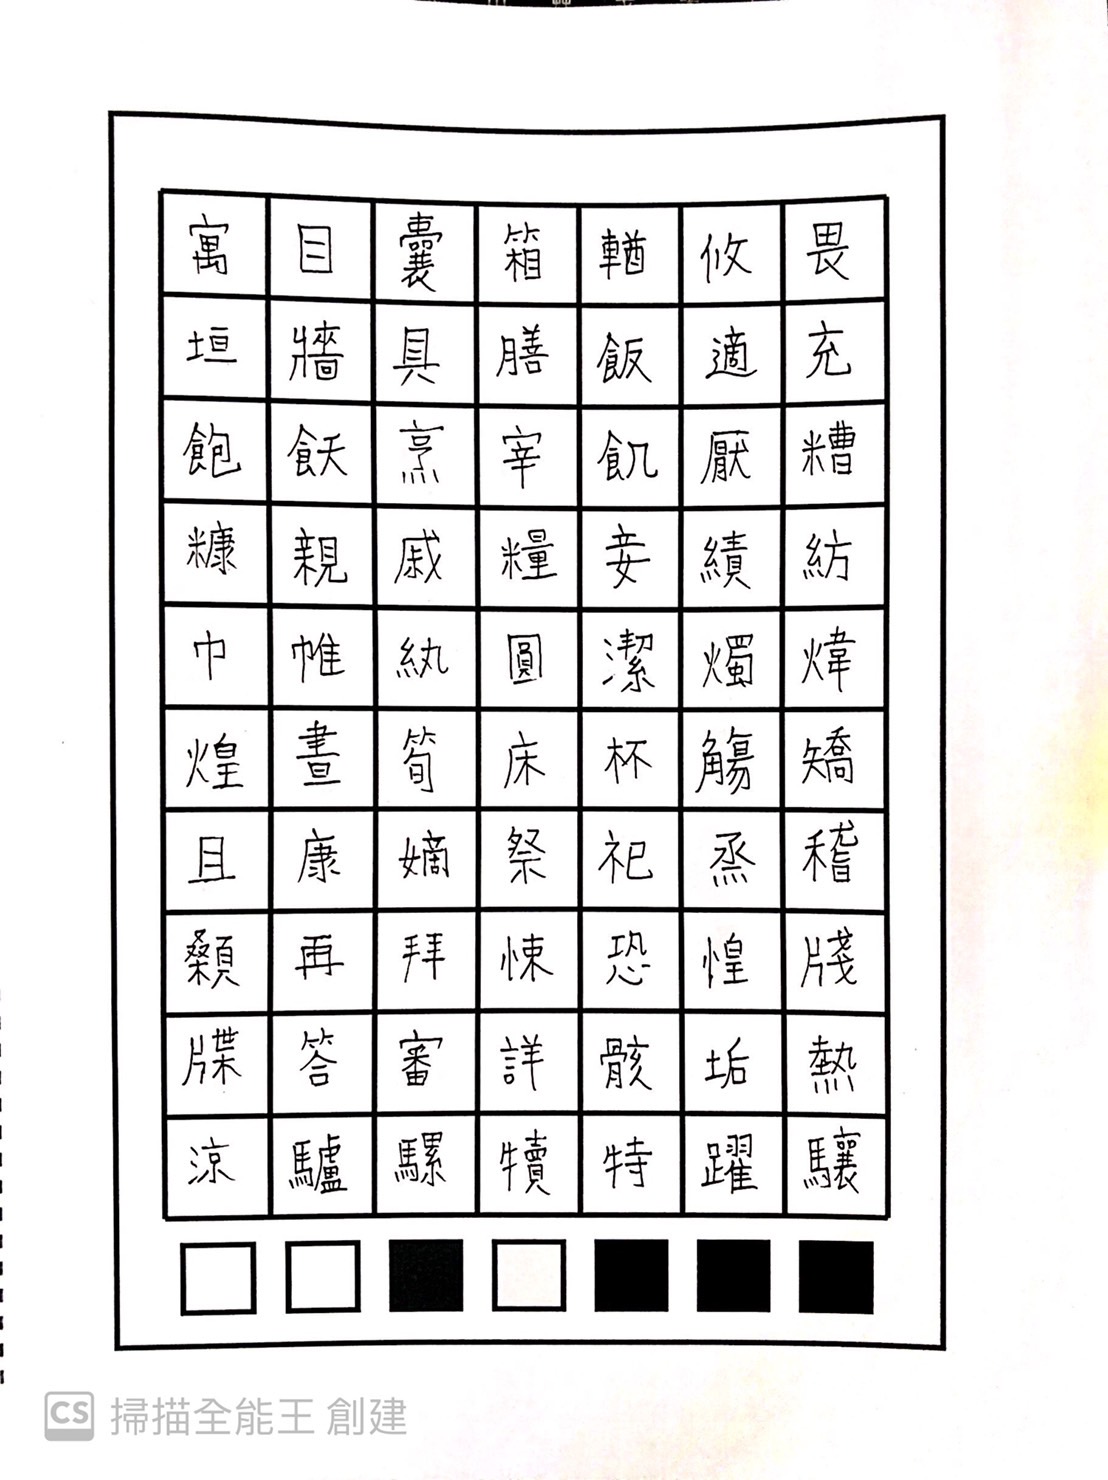 寓目囊箱輶攸畏
垣牆具膳飯適充
飽飫烹宰飢厭糟
糠親戚糧妾績紡
巾帷紈圓潔燭煒
煌晝筍床杯觴矯
且康嫡祭祀烝稽
顙再拜悚恐惶牋
牒答審詳骸垢熱
涼驢騾犢特躍驤
CS 掃描全能王 創建